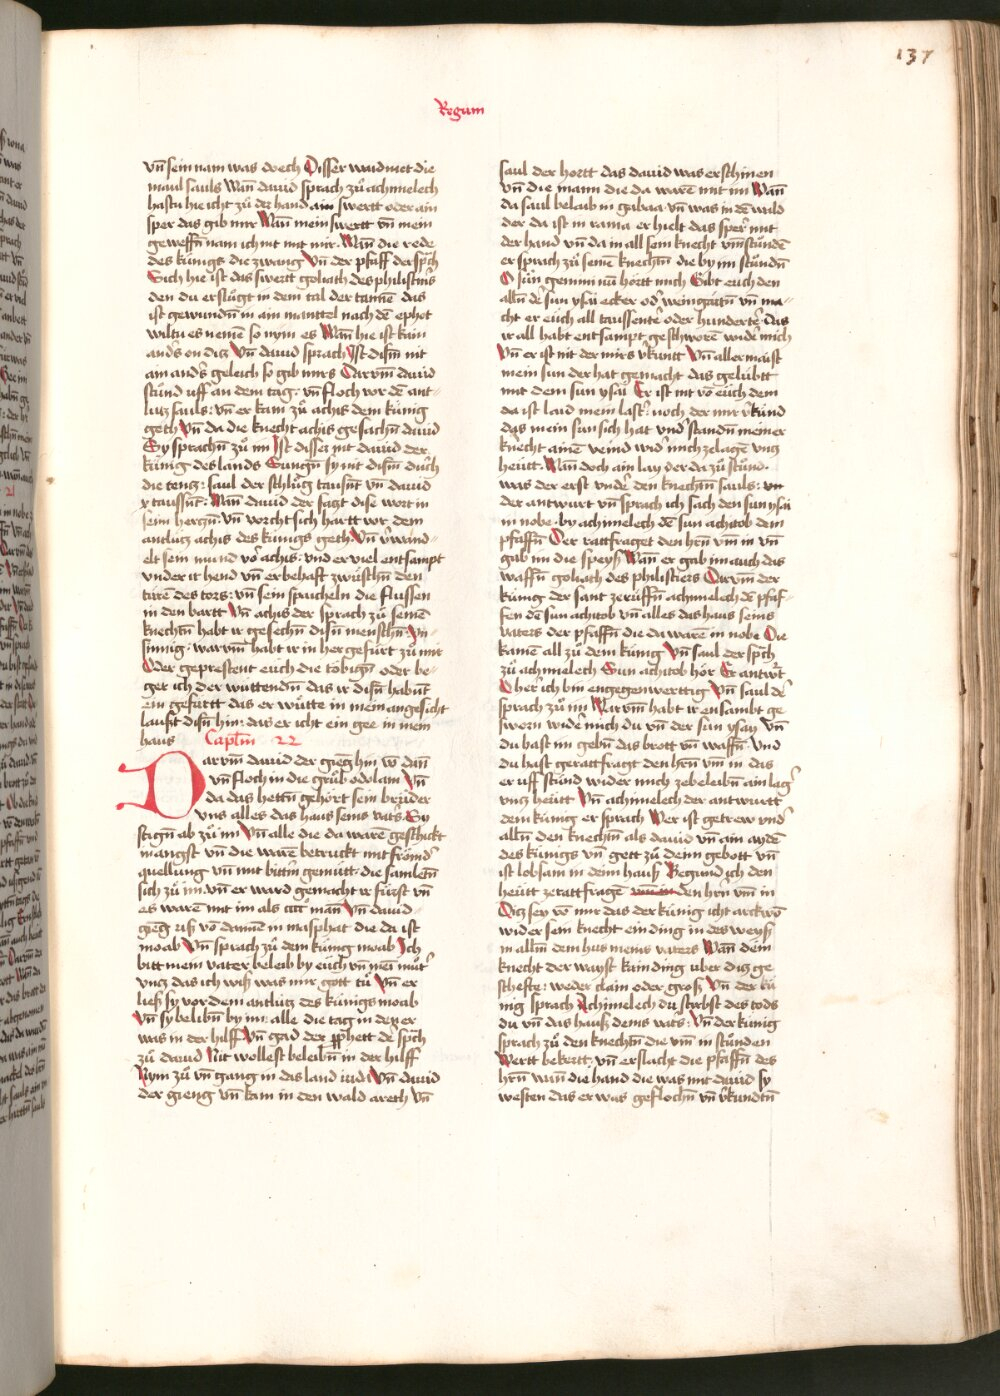 137
Regum
vn̄ sein nam was doech Disser waidnet die
maul sauls Wan̄ dauid sprach zů achimelech
hastu hie icht zů der hand ain swertt oder ain
sper das gib mir Wan̄ mein swertt vn̄ mein
geweffn̄ nam ich nit mit mir. Wan̄ die rede
des künigs die zwang Vn̄ der pfaff der sp̄ch
Sich hie ist das swertt goliath des philistin̄s
den du erslůgt in dem tal der tannē das
ist gewundn̄ in ain manttel nach dē ephot
wiltu es nemē so nym es Wan̄ hie ist kain
and's on ditz Vn̄ dauid sprach Jst dism̄ nit
ain and's geleich so gib mirs Darvm̄ dauid
stůnd uff an dem tag: vn̄ floch vor dē ant-
lutz sauls: vn̄ er kam zů achis dem künig
geth Vn̄ da die knecht achis gesachn̄ dauid
Sy sprachn̄ zů im Jst disser nit dauid der
künig des lands Sungn̄ sy nit dism̄ duch
die tentz: saul der schlůg tausn̄t vn̄ dauid
x taussn̄t: Wan̄ dauid der sagt dise wort in
seim hergn̄: vn̄ vorcht sich hartt vor dem
antlutz achis des künigs geth. Vn̄ v'wand-
elt sein mund vor achis: vnd er viel entsampt
vnder ir hend vn̄ er behaft zwüschn̄ den
türē des tors: vn̄ sein spaicheln die flussen
in den bartt Vn̄ achis der sprach zů seinē
knechtn̄ habt ir gesechn̄ disn̄ menschn̄ vn-
sinnig: warvm̄ habt ir in her gefürt zů mir
Oder geprestent euch die tobign̄ oder be-
ger ich der wüttendn̄ das ir disn̄ habn̄t
ein gefürtt das er wütte in mein angesicht
lauszt disn̄ hin: das er icht ein gee in mein
haus Capl̄m 22
Darvm̄ dauid der gieng hin vō dan̄
vn̄ floch in die grůb odolam Vn̄
da das hettn̄ gehört sein brüder
vn̄s alles das haus seins vat's. Sy
stign̄ ab zů im Vn̄ alle die da warē geschickt
in angst vn̄ die warē betruckt mit frömd'
quellung vn̄ mit bittm̄ gemütt: die samletn̄
sich zů im. vn̄ er ward gemacht ir fürst vn̄
es warē mit im als cccc man̄ Vn̄ dauid
gieng usz vō dannē in masphat die da ist
moab Vn̄ sprach zů dem künig moab Jch
bitt mein vater beleib by euch vn̄ mein můt'
vntz das ich wisz was mir gott tů Vn̄ er
liesz sy vor dem antlutz des künigs moab
Vn̄ sy belibn̄ by im: alle die tag in den er
was in der hilff Vn̄ gad der p̄phett de sp̄ch
zů dauid Nit wollest beleibn̄ in der hilff
Nym zů vn̄ gang in das land iuda Vn̄ dauid
der gieng vn̄ kam in den wald areth Vn̄
saul der hortt das dauid was erschinen
vn̄ die mann die da warē mit im Wan̄
da saul belaib in gabaa vn̄ was in dē wald
der da ist in rama er hielt das sper mit
der hand vn̄ da in all sein knecht vm̄stůndē
er sprach zů seinē knechtn̄ die by im stůndn̄
O sün gemini nu hörtt mich Gibt euch den
alln̄ dē sun ysai ecker od' weingartn̄ vn̄ ma-
cht er euch all taussentē oder hundertē: das
ir all habt entsampt geschworē wid' mich
Vn̄ er ist nit der mirs v'kuntt Vn̄ aller maist
mein sun der hat gemacht das gelübtt
mit dem sun ysai Er ist nit vō euch dem
da ist laid mein last': noch der mir v'künd
das mein sun sich hat vnd' standn̄ meiner
knecht ainē veind wid' mich zelage vntz
heütt. Wan̄ doch ain lay der da zů stůnd.
was der erst vnd' den knechtn̄ sauls: vn̄
der antwurt vn̄ sprach ich sach den sun ysai
in nobe. by achimelech dē sun achitob dem
pfaffn̄ Der rattfraget den hrn̄ vm̄ in vn̄
gab im die speysz Wan̄ er gab im auch das
waffn̄ goliath des philistiers Darvm̄ der
künig der sant zerüffn̄ achimelech dē pfaf-
fen dē sun achitob vn̄ alles das haus seins
vaters der pfaffn̄ die da warē in nobe Die
kamē all zů dem künig Vn̄ saul der sp̄ch
zů achimelech Sun achitob hör Er antwrt
O her ich bin engegenwerttig Vn̄ saul de'
sprach zů im Warvm̄ habt ir ensambt ge
sworn wid' mich du vn̄ der sun ysay Vn̄
du hast im gebn̄ das brott vn̄ waffn̄. Vnd
du hast gerattfragt den hrn̄ vm̄ in das
er uff stůnd wider mich zebeleibn̄ ain lag'
vntz heütt Vn̄ achimelech der antwurtt
dem künig er sprach Wer ist getrew vnd'
alln̄ den knechtn̄ als dauid vn̄ ain aydē
des künigs vn̄ gett zů deinn gebott vn̄
ist lobsam in deim hausz Begund ich den
heütt zerattfragē den hrn̄ vm̄ in
Ditz sey vō mir das der künig icht arckwō
wider sein knecht ein ding in des weysz
in alln̄ dem hus meins vaters Wan̄ dein
knecht der wayst kain ding uber ditz ge
schefte: weder clain oder grosz Vn̄ der kü
nig sprach Achimelech du styrbst des tods
du vn̄ das hausz deins vats: Vn̄ der künig
sprach zů den knechtn̄ die vm̄ in stůnden
Wertt bekertt: vn̄ erslacht die pfaffn̄ des
hrn̄ wan̄ die hand die was mit dauid sy
westen das er was geflochn̄ vn̄ v'kundtn̄